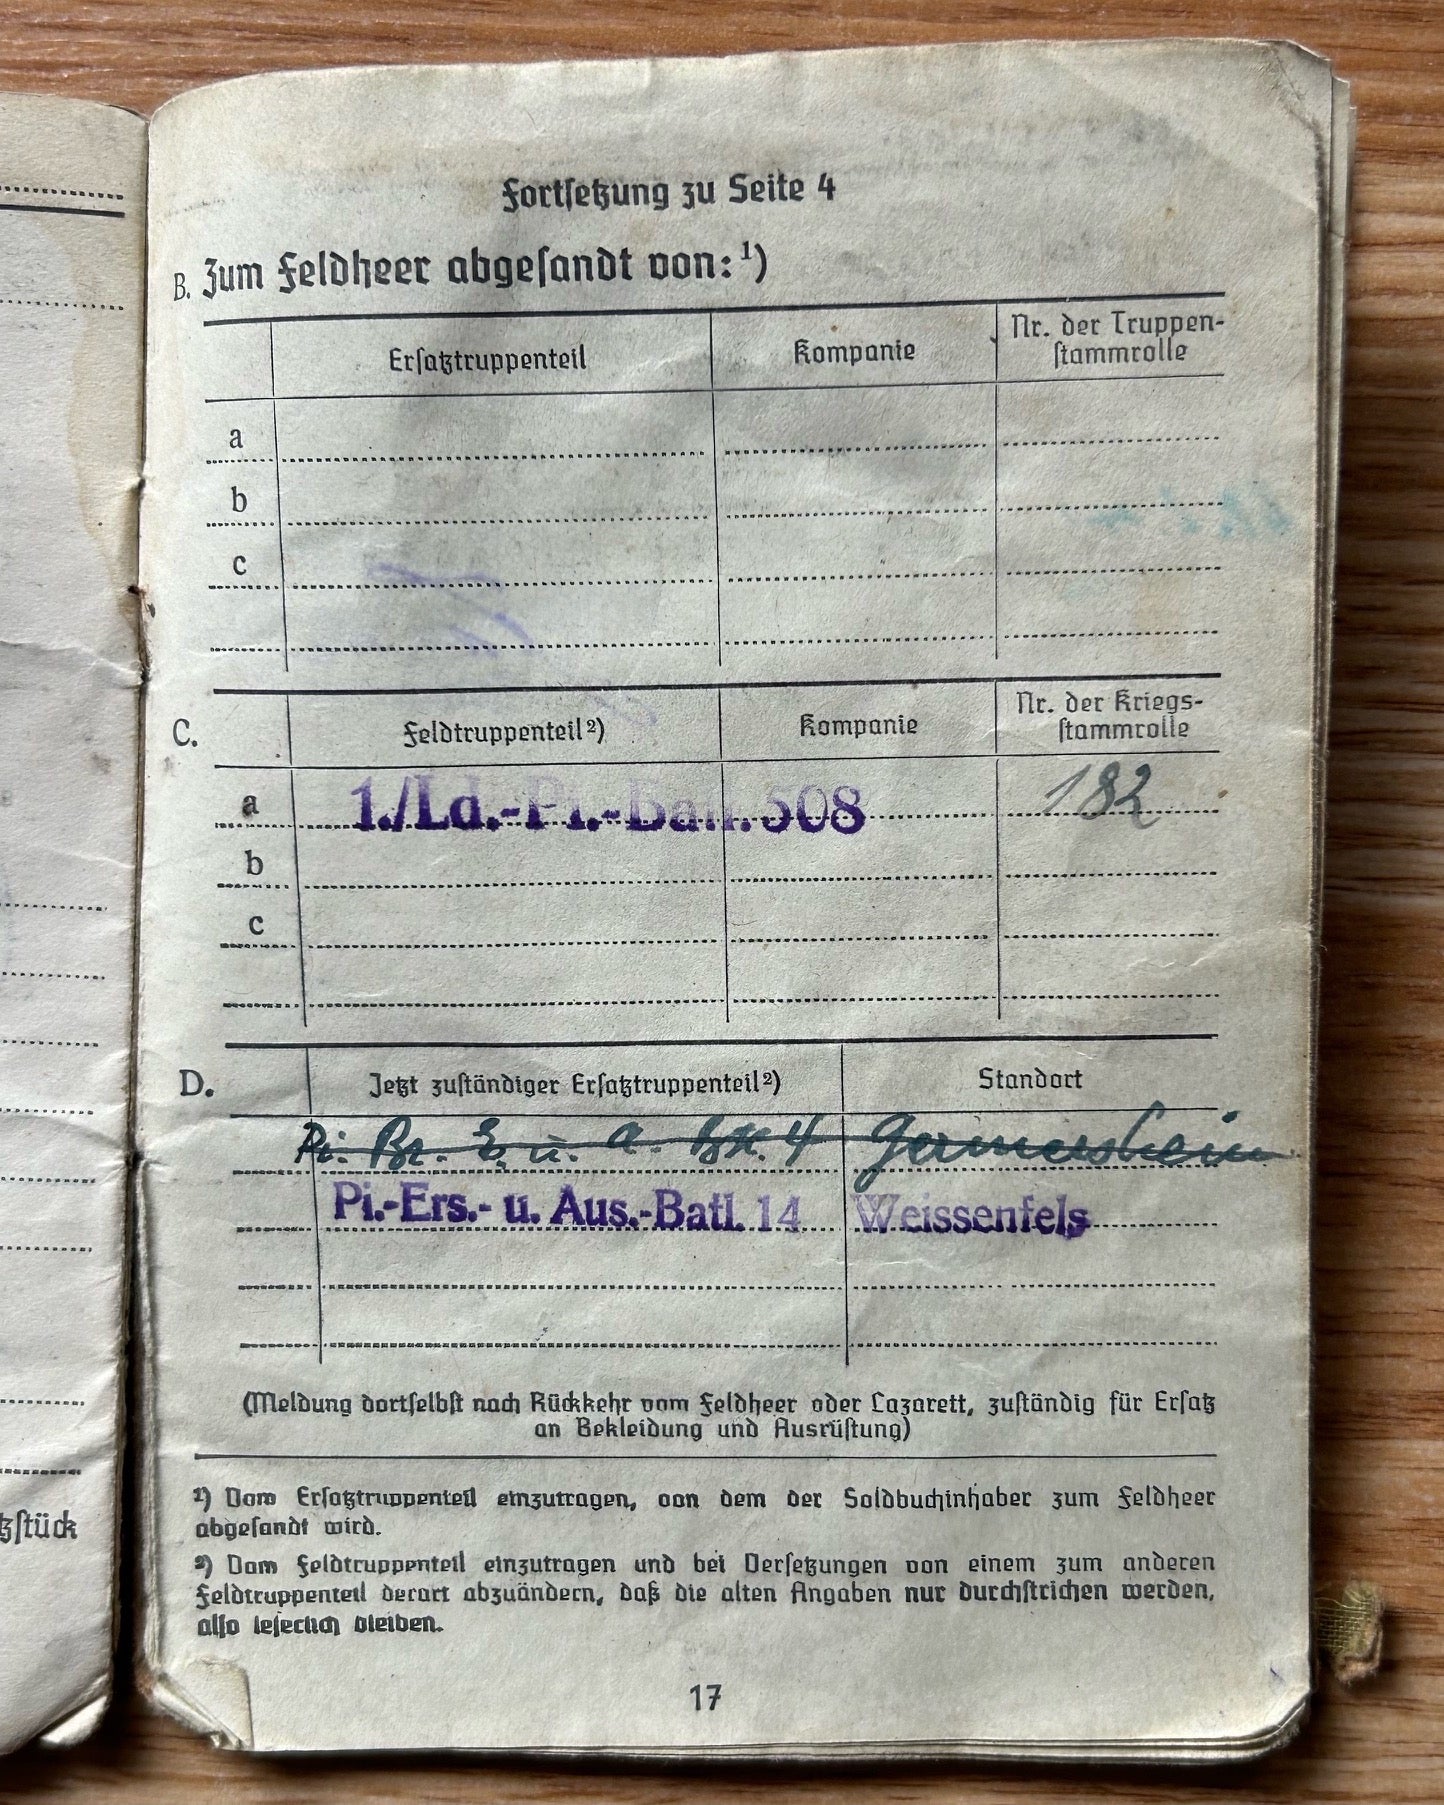 Fortsetzung zu Seite 4
B. Zum Feldheer abgesandt von:¹)
Ersatztruppenteil Kompanie Nr. der Truppen-
stammrolle
a
b
c
C. Feldtruppenteil²) Kompanie Nr. der Kriegs-
stammrolle
a 1./Ld.-Pi.-Batl. 508 182
b
c
D. Jetzt zuständiger Ersatztruppenteil²) Standort
Pi. Br. E. u. A. Btl. 4 Germersheim
Pi.-Ers.- u. Aus.-Batl. 14 Weissenfels
(Meldung dortselbst nach Rückkehr vom Feldheer oder Lazarett, zuständig für Ersatz
an Bekleidung und Ausrüstung)
¹) Vom Ersatztruppenteil einzutragen, von dem der Soldbuchinhaber zum Feldheer
abgesandt wird.
²) Vom Feldtruppenteil einzutragen und bei Versetzungen von einem zum anderen
Feldtruppenteil derart abzuändern, daß die alten Angaben nur durchstrichen werden,
also leserlich bleiben.
17
zstück